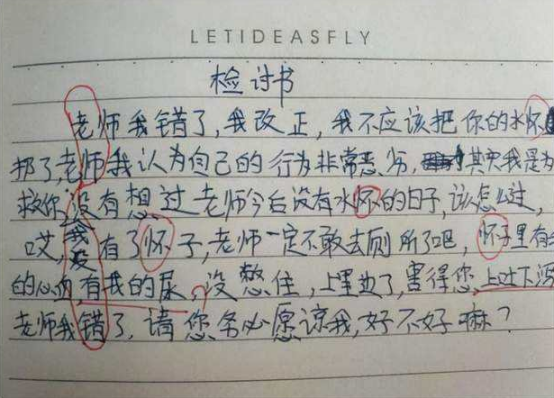 LETIDEASFLY
检讨书
老师我错了,我改正,我不应该把你的水怀
扔了,老师我认为自己的行为非常恶劣,其实我是为
救你,没有想过老师今后没有水怀的日子,该怎么过,
哎,我没有了怀子,老师一定不敢去厕所了吧,怀子里有
的心血,有我的尿,没憋住,上里边了,害得您上吐下泻
老师我错了,请您务必愿谅我,好不好嘛?